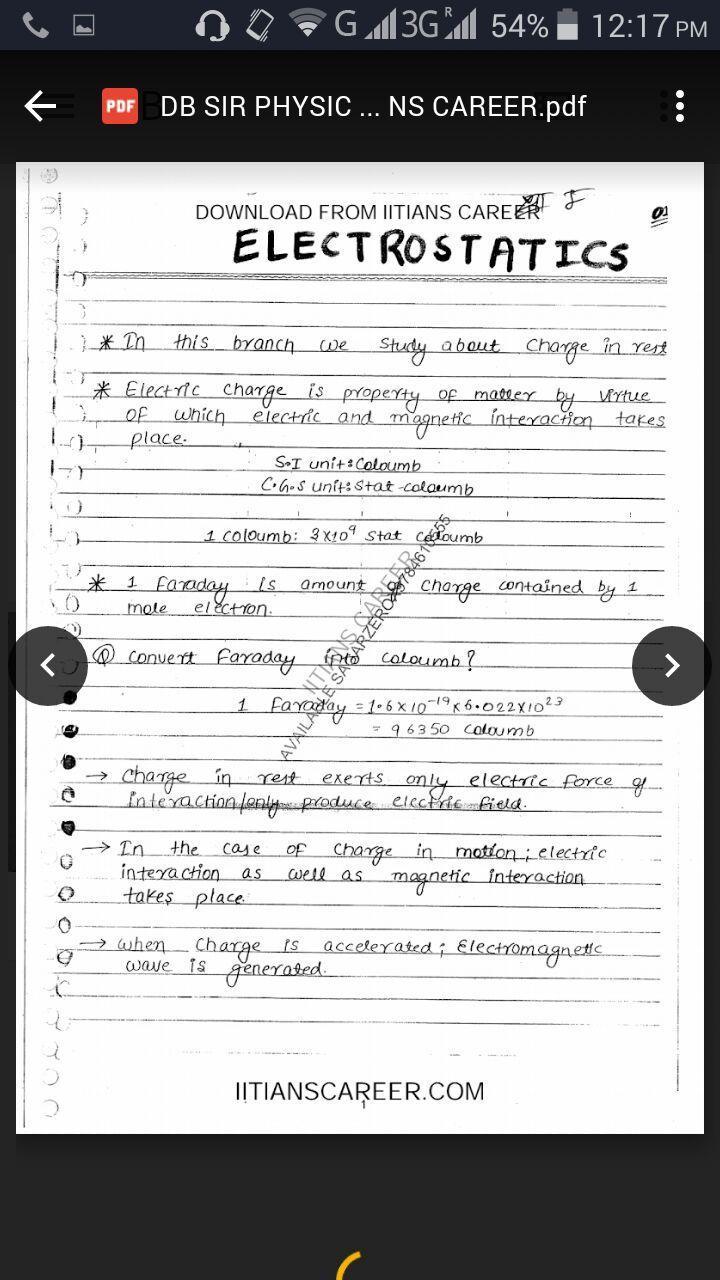 G 3G R 54% 12:17 PM
PDF DB SIR PHYSIC ... NS CAREER.pdf
DOWNLOAD FROM IITIANS CAREER
01
ELECTROSTATICS
* In this branch we study about charge in rest
* Electric charge is property of matter by virtue
of which electric and magnetic interaction takes
place.
S.I unit: Coloumb
C.G.S unit: Stat-coloumb
1 coloumb: 3x10⁹ Stat coloumb
* 1 Faraday is amount of charge contained by 1
mole electron.
Q convert Faraday into coloumb?
1 Faraday = 1.6x10⁻¹⁹x6.022x10²³
= 96350 coloumb
→ Charge in rest exerts only electric force of
interaction/only produce electric field.
→ In the case of charge in motion; electric
interaction as well as magnetic interaction
takes place.
→ when charge is accelerated; Electromagnetic
wave is generated.
IITIANS CAREER
IITIANSCAREER.COM
1